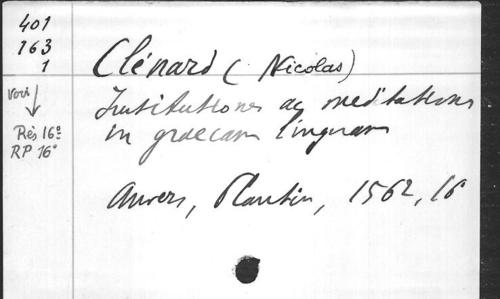 401
163
1
voir
Rés 16º
RP 16º
Clénard (Nicolas)
Institutiones ac meditationes
in graecam linguam
Anvers, Plantin, 1562, 16